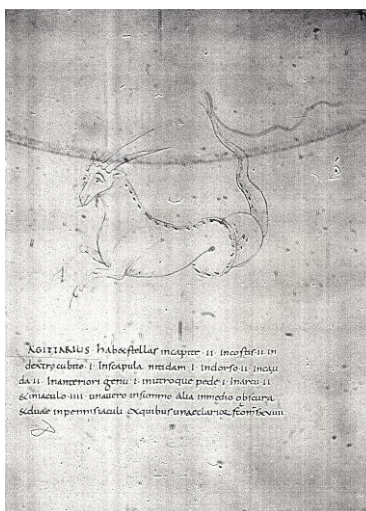 AGITTARIUS · habet stellas incapite · II · Incostis · II · in
dextro cubito · I · Inscapula nitidam · I · Indorso · II · incau
da · II · Inanteriori genu · I · inutroque pede · I · Inarcu · II
& iniaculo · IIII · unauero insummo alia inmedio obscura
& duae inpennisiaculi exquibus una clarior